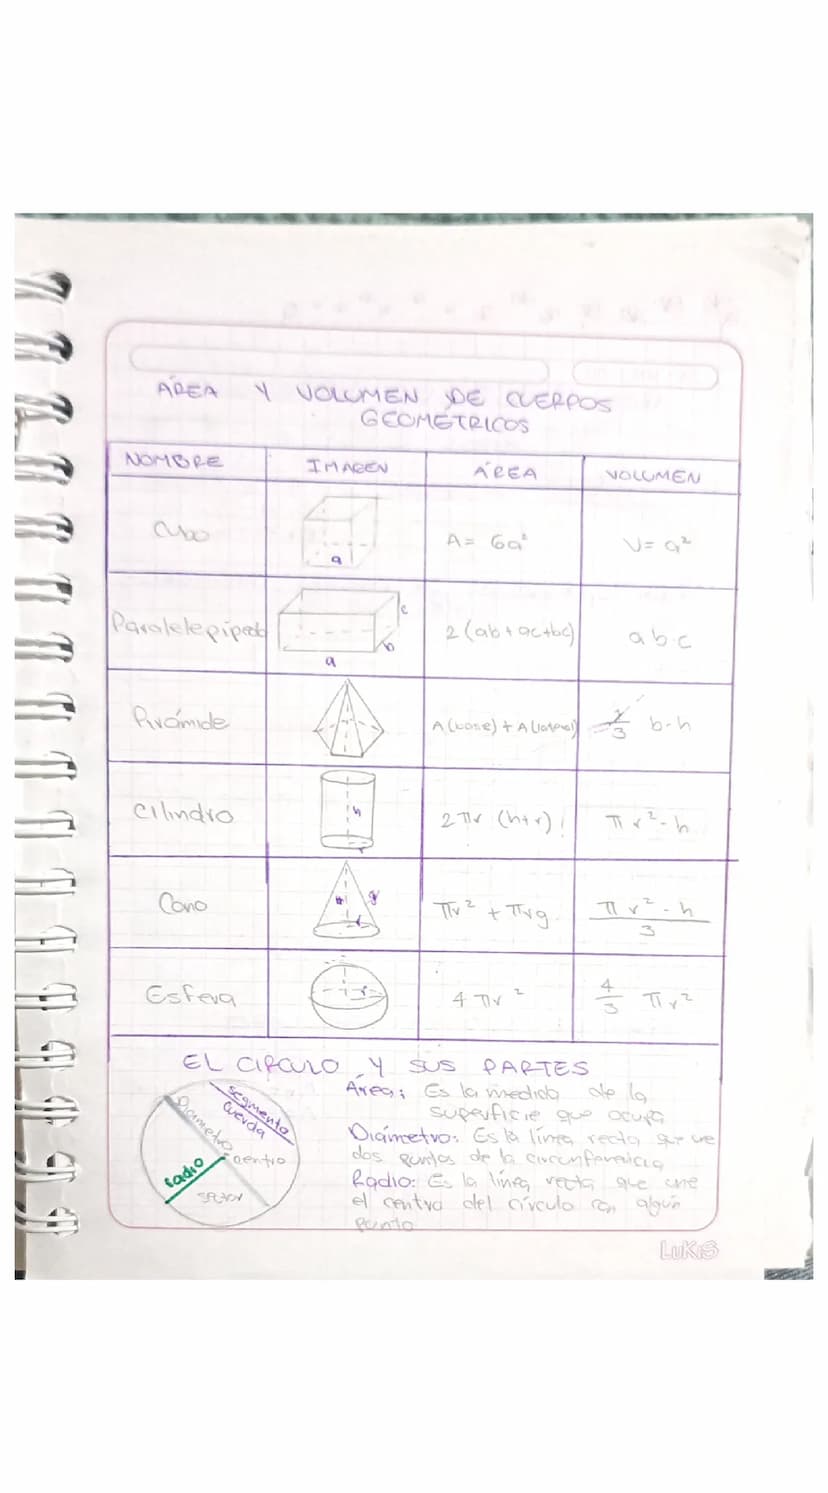 ÁREA Y VOLUMEN DE CUERPOS
GEOMÉTRICOS
NOMBRE IMAGEN ÁREA VOLUMEN
Cubo a A= 6a² V= a²
Paralelepípedo a b c 2(ab+ac+bc) a b·c
Pirámide A(base) + A(lateral) /3 b·h
Cilindro h r 2πr (h+r) πr²·h
Cono h g r πr² + πrg πr²·h/3
Esfera r 4πr² 4/3 πr²
EL CIRCULO Y SUS PARTES
segmento
cuerda
Diámetro
centro
radio
sector
Área: Es la medida de la
superficie que ocupa
Diámetro: Es la línea recta que une
dos puntos de la circunferencia
Radio: Es la línea recta que une
el centro del círculo con algún
punto
LUKIS